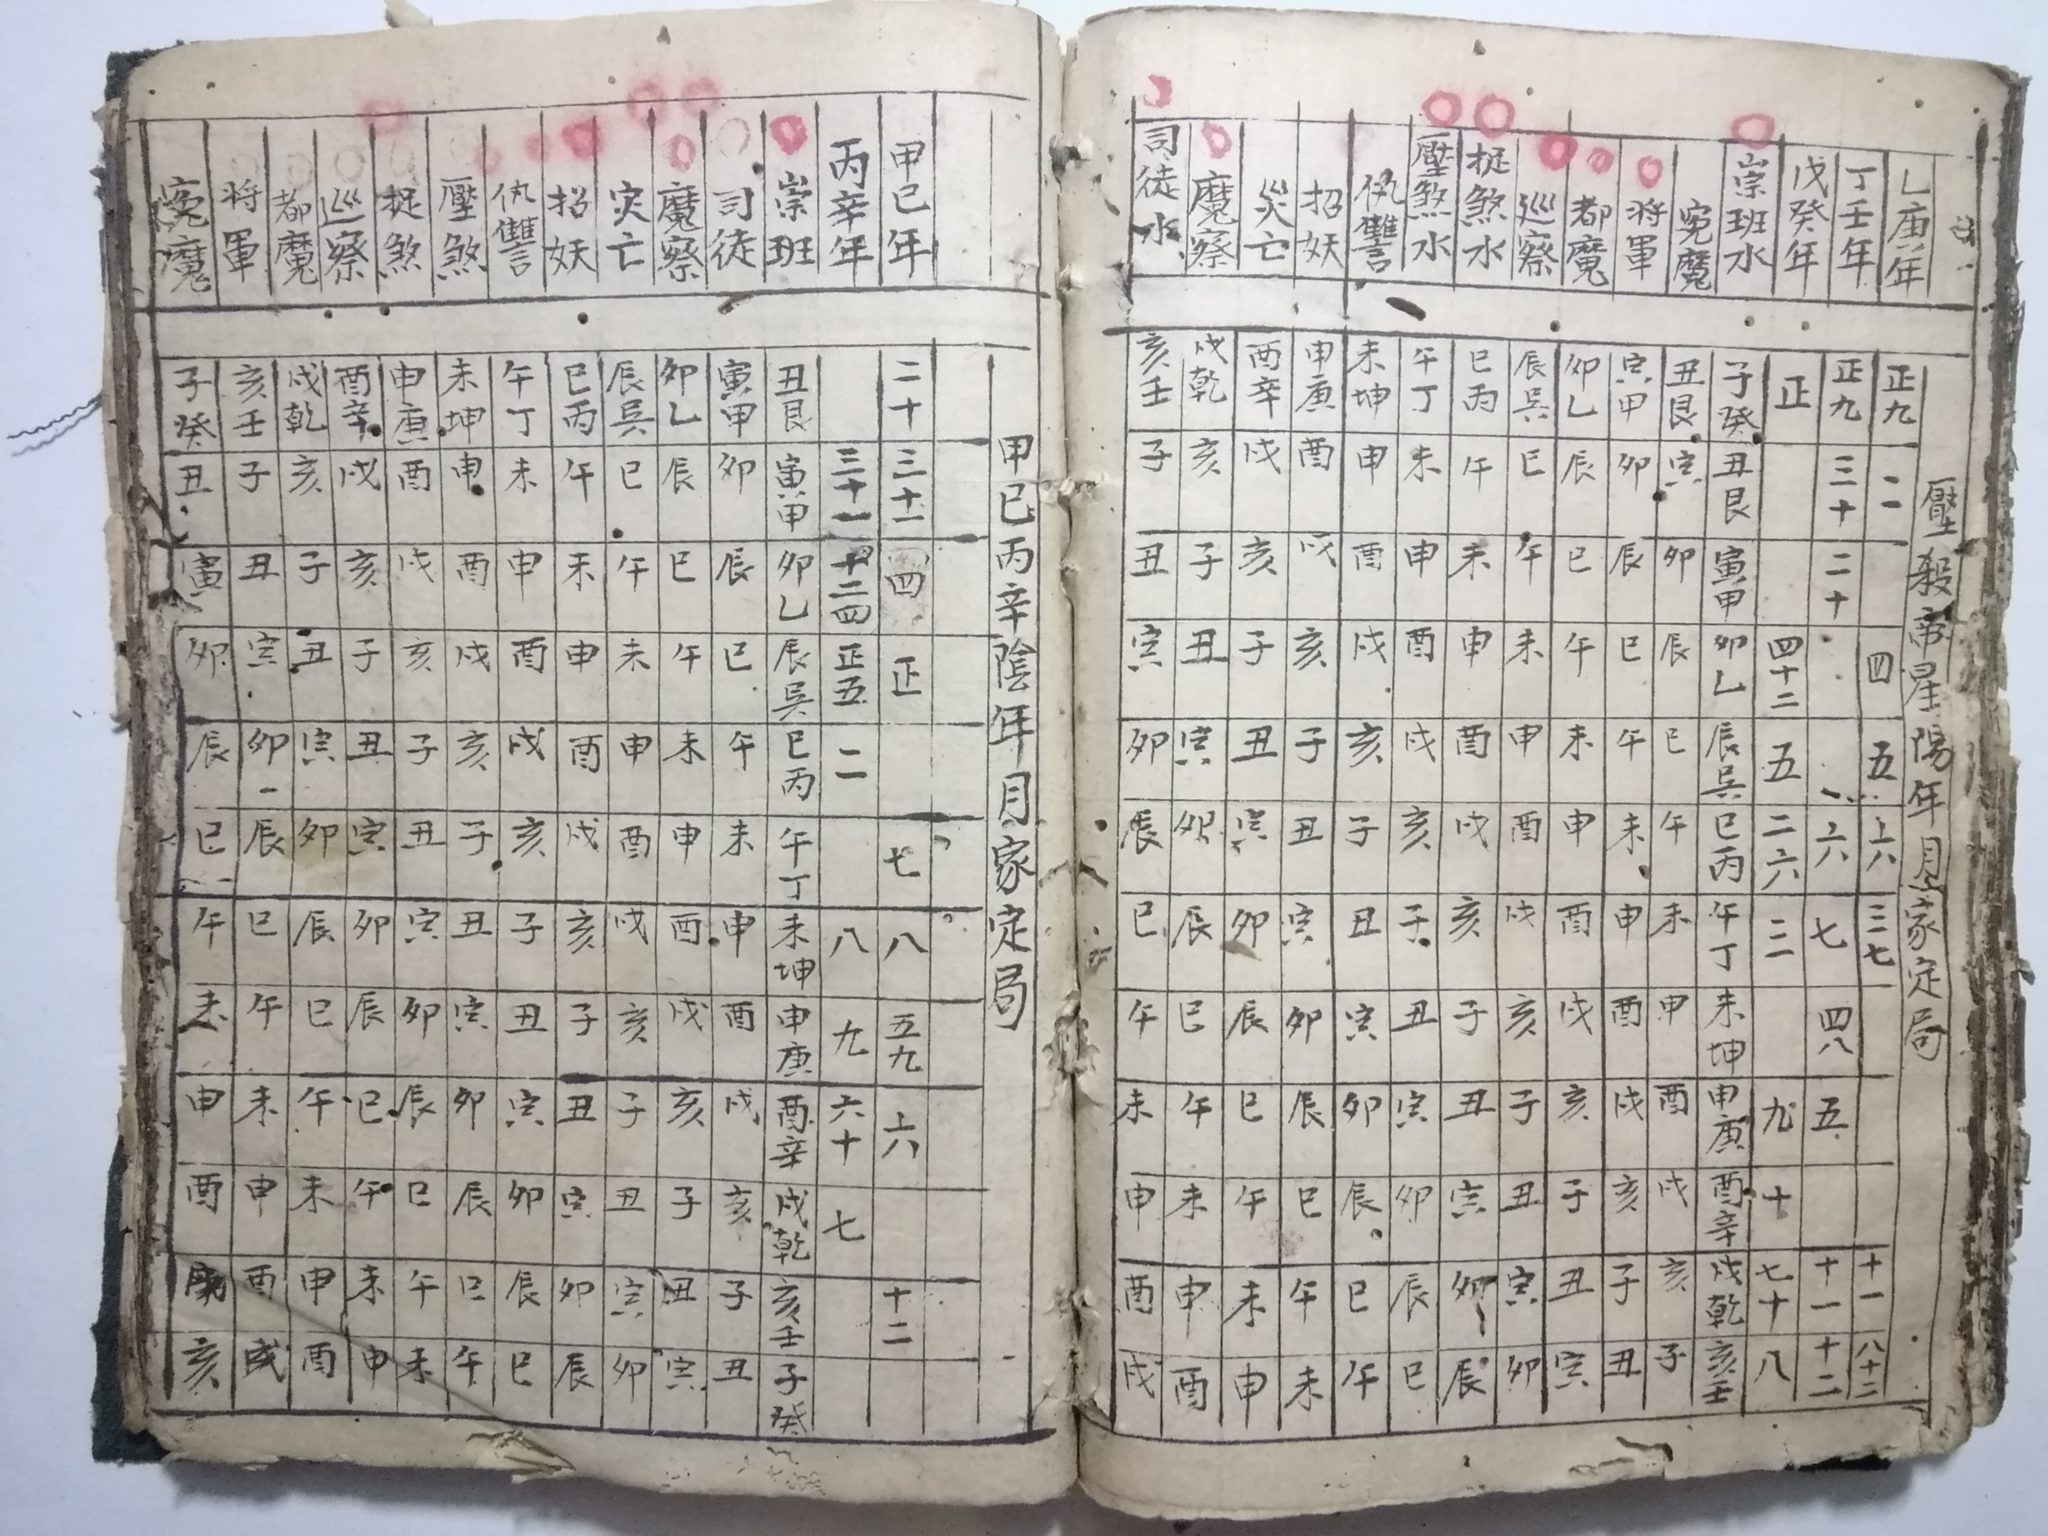 壓殺帝星陽年月家定局
乙庚年 正九 二 四 五 六 三七 十一 八十二
丁壬年 正九 三十 二十 六 七 四八 五 十一 十二
戊癸年 正 四十二 五 二六 三 九 十 七十 八
崇班水 子癸 丑艮 寅甲 卯乙 辰吴 巳丙 午丁 未坤 申庚 酉辛 戌乾 亥壬
冤魔 丑艮 寅 卯 辰 巳 午 未 申 酉 戌 亥 子
將軍 寅甲 卯 辰 巳 午 未 申 酉 戌 亥 子 丑
都魔 卯乙 辰 巳 午 未 申 酉 戌 亥 子 丑 寅
巡察 辰吴 巳 午 未 申 酉 戌 亥 子 丑 寅 卯
捉煞水 巳丙 午 未 申 酉 戌 亥 子 丑 寅 卯 辰
壓煞水 午丁 未 申 酉 戌 亥 子 丑 寅 卯 辰 巳
仇讐 未坤 申 酉 戌 亥 子 丑 寅 卯 辰 巳 午
招妖 申庚 酉 戌 亥 子 丑 寅 卯 辰 巳 午 未
災亡 酉辛 戌 亥 子 丑 寅 卯 辰 巳 午 未 申
魔察 戌乾 亥 子 丑 寅 卯 辰 巳 午 未 申 酉
司徒水 亥壬 子 丑 寅 卯 辰 巳 午 未 申 酉 戌
甲巳丙辛陰年月家定局
甲巳年 二十 三十一 四 正 七 八 五九 六 十二
丙辛年 三十一 十二四 正五 二 八 九 六十 七
崇班 丑艮 寅甲 卯乙 辰吴 巳丙 午丁 未坤 申庚 酉辛 戌乾 亥壬 子癸
司徒 寅甲 卯 辰 巳 午 未 申 酉 戌 亥 子 丑
魔察 卯乙 辰 巳 午 未 申 酉 戌 亥 子 丑 寅
災亡 辰吴 巳 午 未 申 酉 戌 亥 子 丑 寅 卯
招妖 巳丙 午 未 申 酉 戌 亥 子 丑 寅 卯 辰
仇讐 午丁 未 申 酉 戌 亥 子 丑 寅 卯 辰 巳
壓煞 未坤 申 酉 戌 亥 子 丑 寅 卯 辰 巳 午
捉煞 申庚 酉 戌 亥 子 丑 寅 卯 辰 巳 午 未
巡察 酉辛 戌 亥 子 丑 寅 卯 辰 巳 午 未 申
都魔 戌乾 亥 子 丑 寅 卯 辰 巳 午 未 申 酉
將軍 亥壬 子 丑 寅 卯 辰 巳 午 未 申 酉 戌
冤魔 子癸 丑 寅 卯 辰 巳 午 未 申 酉 戌 亥